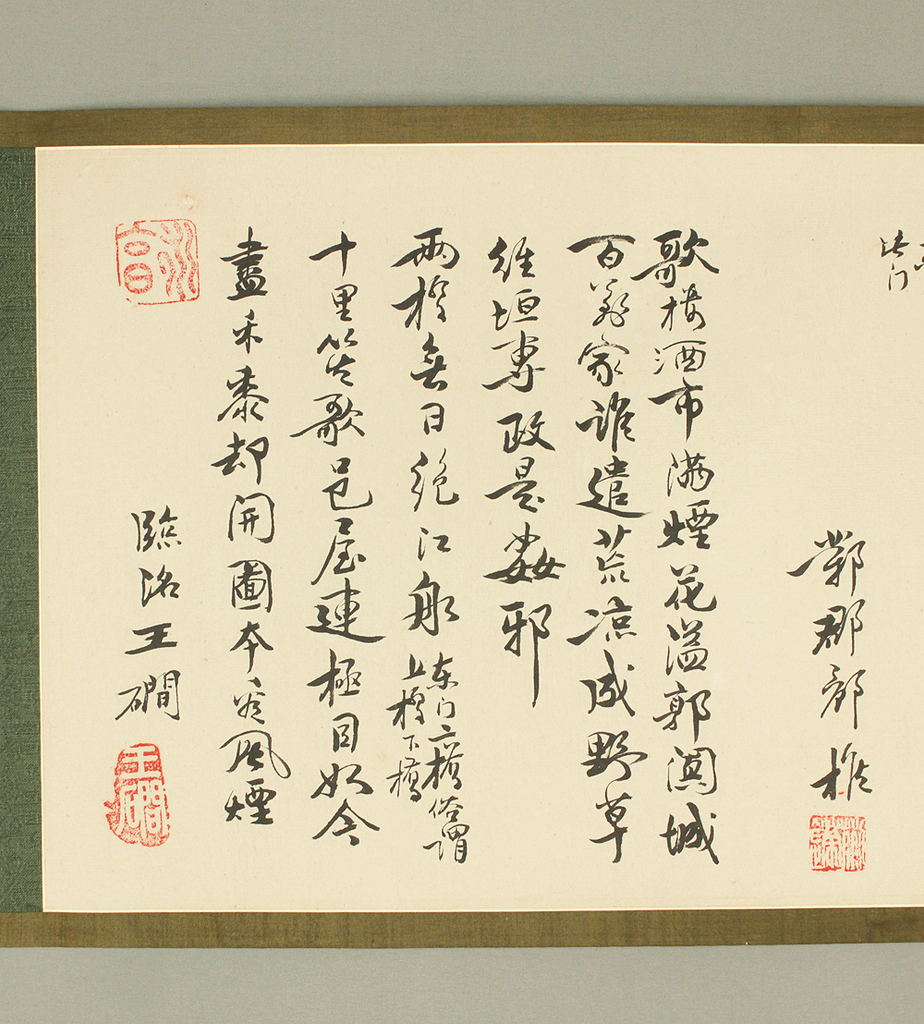 鄴郡酈權
歌樓酒市滿煙花溢郭闐城
百萬家誰遣荒凉成野草
維垣專政是姦邪
兩橋無日絕江船
东门二橋俗謂
上橋下橋
十里笙歌邑屋連極目如今
盡禾黍却開圖本看風煙
臨洺王磵